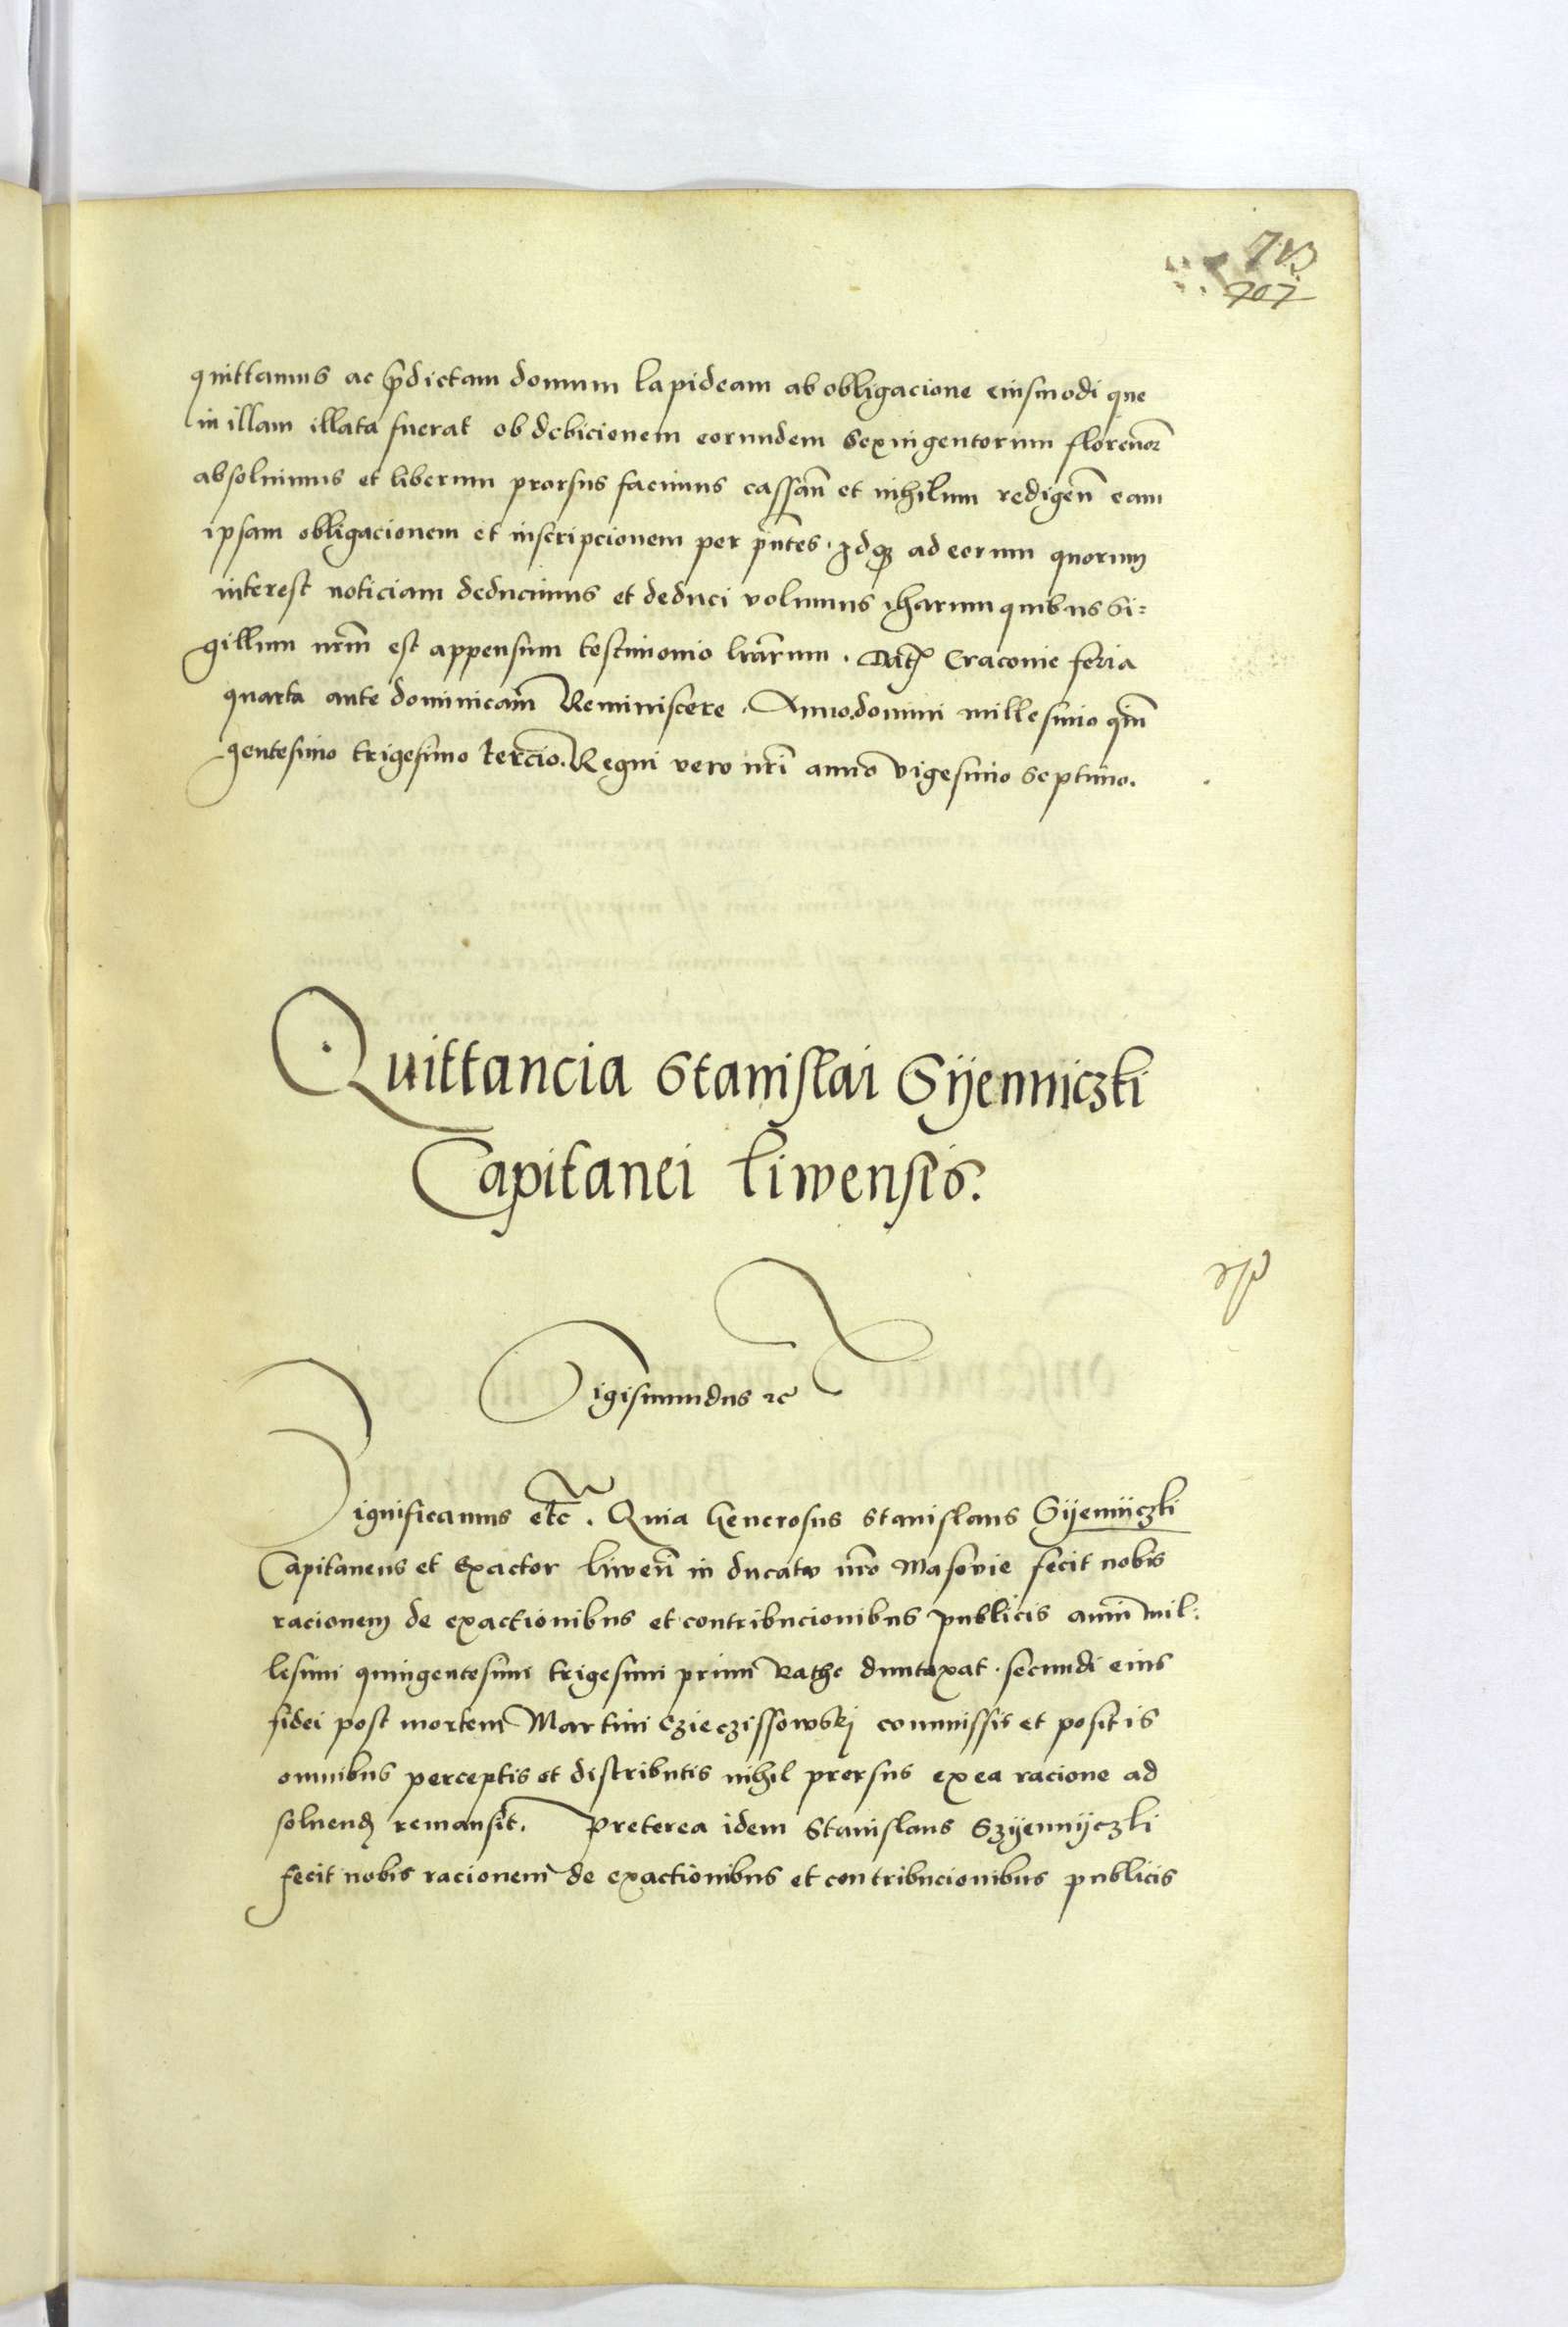 713
707
quittamus ac p̄dictam domum lapideam ab obligacione eiusmodi que
in illam illata fuerat ob debicionem eorundem sexingentorum florenoꝝ
absoluimus et liberum prorsus facimus cassan̄ et nihilum redigen̄ eam
ipsam obligacionem et inscripcionem per p̄ntes. Idqꝫ ad eorum quorum
interest noticiam deducimus et deduci volumus, harum quibus si=
gillum nr̄m est appensum testimonio lr̄arum. Datꝭ Cracovie feria
quarta ante dominicam Reminiscere. Anno domini millesimo quin
gentesimo trigesimo tercio. Regni vero nr̄i anno vigesimo septimo.
Quittancia Stanislai Syenniczki
Capitanei Liwensis.
Sigismundus ꝛc
Significamus etc. Quia Generosus Stanislaus Syenyczki
Capitaneus et Exactor liwen̄ in ducatu nr̄o Masovie fecit nobis
racionem de exactionibus et contribucionibus publicis anni mil:
lesimi quingentesimi trigesimi primi Rathe duntaxat secundi eius
fidei post mortem Martini Czieczissowskj commissis et positis
omnibus perceptis et distributis nihil prorsus ex ea racione ad
soluendꝫ remansit. Preterea idem Stanislaus Szyennyczki
fecit nobis racionem de exactionibus et contribucionibus publicis